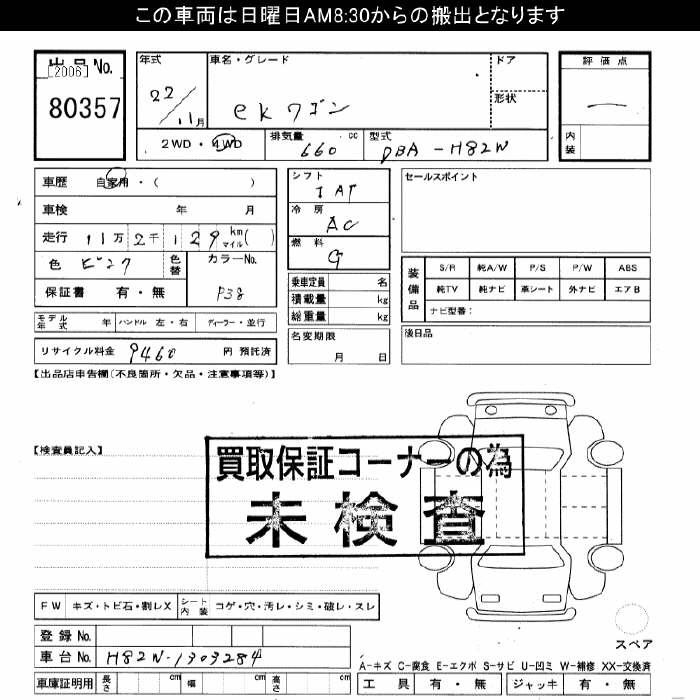 この車両は日曜日AM8:30からの搬出となります
出品No.
[2006]
80357
年式
22/11月
車名・グレード
ekワゴン
ドア
形状
評価点
内装
2WD・4WD
排気量 660 cc
型式 DBA-H82W
車歴 自家用・( )
車検 年 月
走行 11万2千129km(マイル)
色 ピンク
色替
カラーNo.
P38
保証書 有・無
シフト
IAT
冷房
AC
燃料
G
乗車定員 名
積載量 kg
総重量 kg
名変期限
月 日
セールスポイント
装備品
S/R 純A/W P/S P/W ABS
純TV 純ナビ 革シート 外ナビ エアB
ナビ型番:
後日品
モデル年式 年 ハンドル 左・右 ディーラー・並行
リサイクル料金 9460 円 預託済
【出品店申告欄(不良箇所・欠品・注意事項等)】
【検査員記入】
買取保証コーナーの為
未検査
FW キズ・トビ石・割レX シート内装 コゲ・穴・汚レ・シミ・破レ・スレ
登録No.
車台No. H82W-1303284
車庫証明用 長さ cm 幅 cm 高さ cm
スペア
A-キズ C-腐食 E-エクボ S-サビ U-凹ミ W-補修 XX-交換済
工具 有・無 ジャッキ 有・無